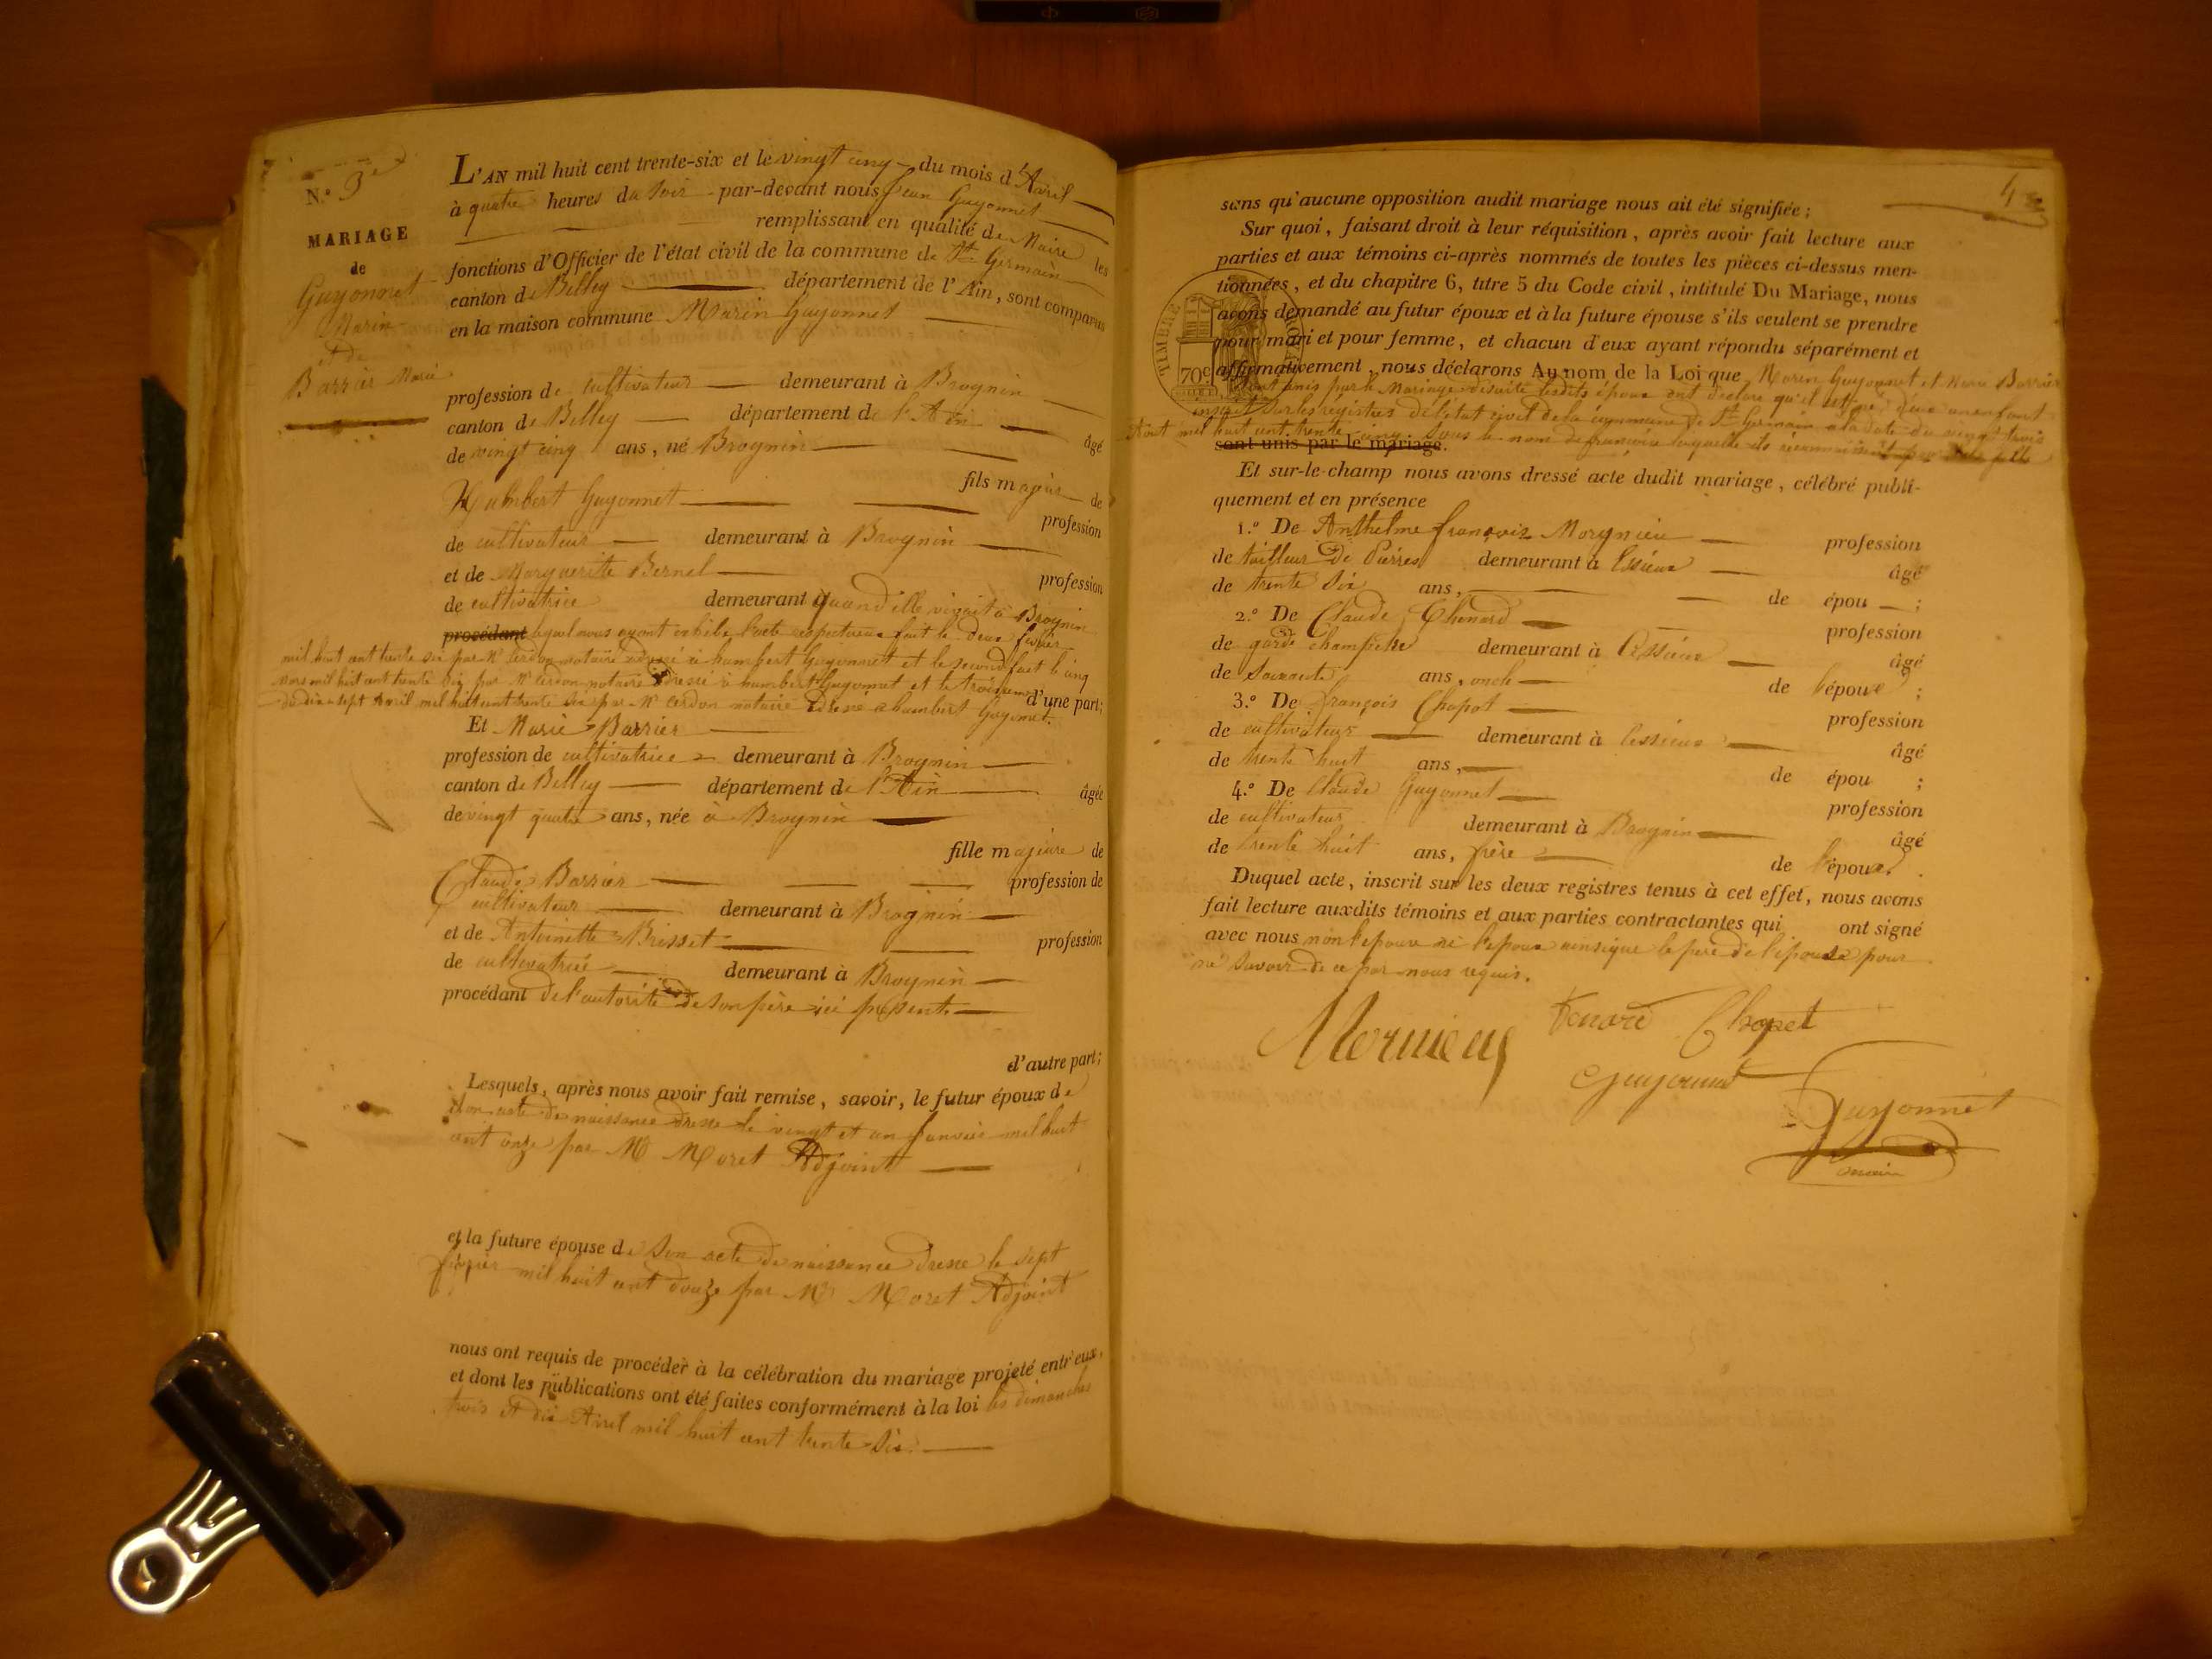 N.° 3
MARIAGE
de
Guyonnet
Marin
et de
Barrier Marie
L'AN mil huit cent trente-six et le vingt cinq du mois d'Avril
à quatre heures du soir par-devant nous Jean Guyonnet
remplissant en qualité de Maire les
fonctions d'Officier de l'état civil de la commune de St Germain
canton de Belley département de l'Ain, sont comparus
en la maison commune Marin Guyonnet
profession de cultivateur demeurant à Brognin
canton de Belley département de l'Ain âgé
de vingt cinq ans, né Brognin
fils majeur de
Humbert Guyonnet profession
de cultivateur demeurant à Brognin
et de Marguerite Bernel profession
de cultivatrice demeurant quand elle vivait à Brognin
procédant lequel nous ayant exhibé l'acte respectueux fait le deux février
mil huit cent trente six par Mr Cerdon notaire adressé à humbert Guyonnet et le second fait le cinq
mars mil huit cent trente six par Mr Cerdon notaire adressé à humbert Guyonnet et le troisieme
du dix sept Avril mil huit cent trente six par Mr Cerdon notaire adressé a humbert Guyonnet. d'une part;
Et Marie Barrier
profession de cultivatrice demeurant à Brognin
canton de Belley département de l'Ain âgée
de vingt quatre ans, née à Brognin
fille majeure de
Claude Barrier profession de
cultivateur demeurant à Brognin
et de Antoinette Brisset profession
de cultivatrice demeurant à Brognin
procédant de l'autorité de son père ici présent
d'autre part;
Lesquels, après nous avoir fait remise, savoir, le futur époux de
son acte de naissance dressé le vingt et un Janvier mil huit
cent onze par Mr Moret Adjoint
et la future épouse de son acte de naissance dressé le sept
février mil huit cent douze par Mr Moret Adjoint
nous ont requis de procéder à la célébration du mariage projeté entr'eux,
et dont les publications ont été faites conformément à la loi les dimanches
trois et dix Avril mil huit cent trente six.
4
sans qu'aucune opposition audit mariage nous ait été signifiée;
Sur quoi, faisant droit à leur réquisition, après avoir fait lecture aux
parties et aux témoins ci-après nommés de toutes les pièces ci-dessus men-
tionnées, et du chapitre 6, titre 5 du Code civil, intitulé Du Mariage, nous
avons demandé au futur époux et à la future épouse s'ils veulent se prendre
pour mari et pour femme, et chacun d'eux ayant répondu séparément et
affirmativement, nous déclarons Au nom de la Loi que Marin Guyonnet et Marie Barrier
sont unis par le Mariage desuite lesdits époux ont déclaré qu'il est né d'eux un enfant
inscrit sur les régistres de l'état civil de la commune de St Germain a la date du vingt trois
Aout mil huit cent trente cinq sous le nom de françoise laquelle ils reconnaissent pour leur fille
sont unis par le mariage.
TIMBRE ROYAL
70c
Et sur-le-champ nous avons dressé acte dudit mariage, célébré publi-
quement et en présence
1.° De Anthelme françois Morgnieu profession
de tailleur De Pierres demeurant à Essieux âgé
de trente six ans, de épou ;
2.° De Claude Thenard profession
de garde champêtre demeurant à Cessieux âgé
de soixante ans, oncle de l'époux ;
3.° De françois Chapot profession
de cultivateur demeurant à Cessieux âgé
de trente huit ans, de épou ;
4.° De Claude Guyonnet profession
de cultivateur demeurant à Brognin âgé
de trente huit ans, frère de l'époux.
Duquel acte, inscrit sur les deux registres tenus à cet effet, nous avons
fait lecture auxdits témoins et aux parties contractantes qui ont signé
avec nous non l'époux ni l'épouse ainsi que le père de l'épouse pour
ne savoir de ce par nous requis.
Mornieux Tenard Chapet
Guyonnet
Guyonnet
maire